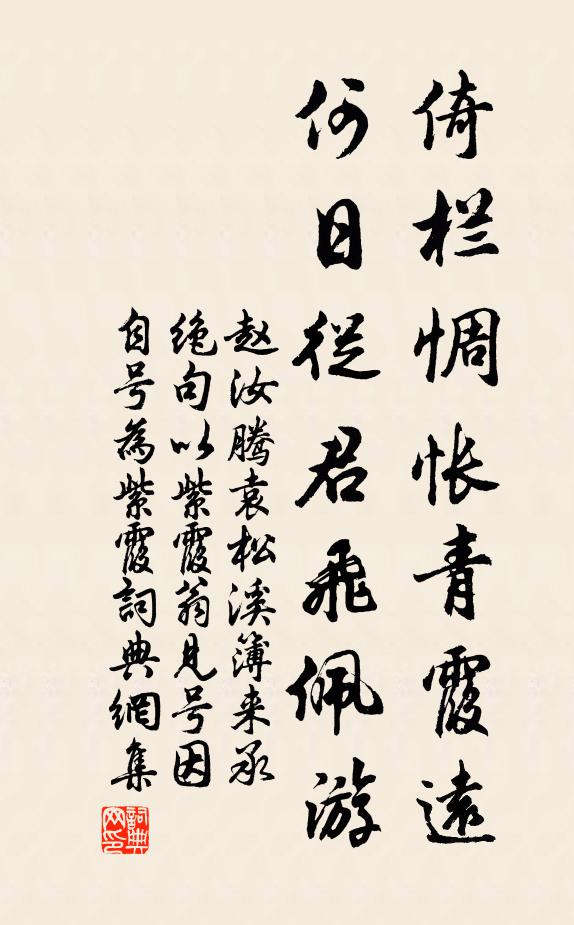 倚栏惆怅青霞远
何日從君飛佩游
赵汝腾袁松溪簿来承
绝句以紫霞翁見号因
自号為紫霞詞典網集
詞典网印